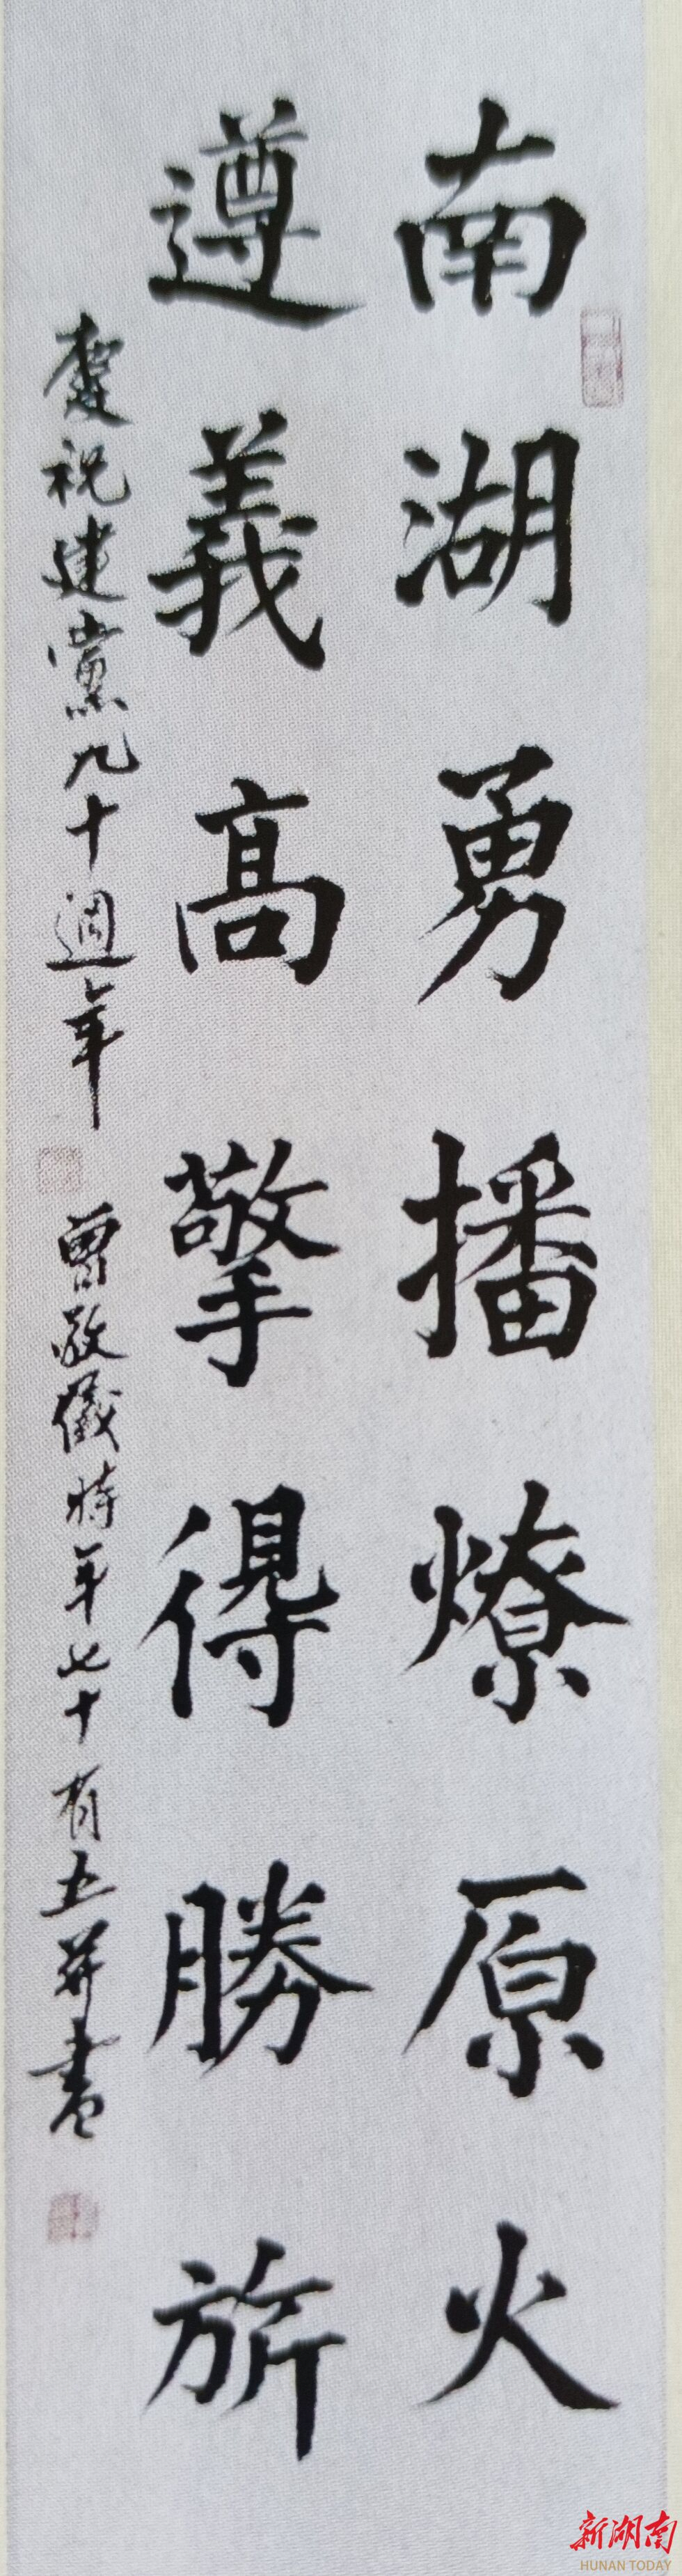 南湖勇播燎原火
遵義高擎得勝旂
慶祝建黨九十週年
曾敬儀時年七十有五并書
新湖南
HUNAN TODAY